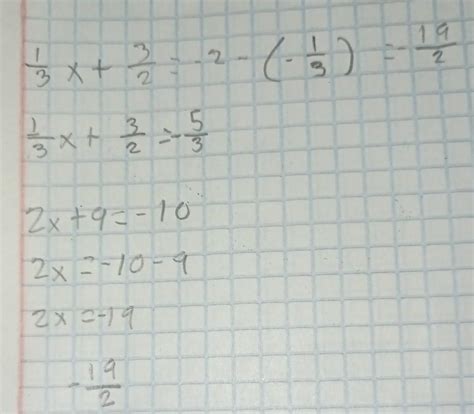 1/3 x + 3/2 = -2 - (-1/3) = -19/2
1/3 x + 3/2 = -5/3
2x + 9 = -10
2x = -10 - 9
2x = -19
-19/2